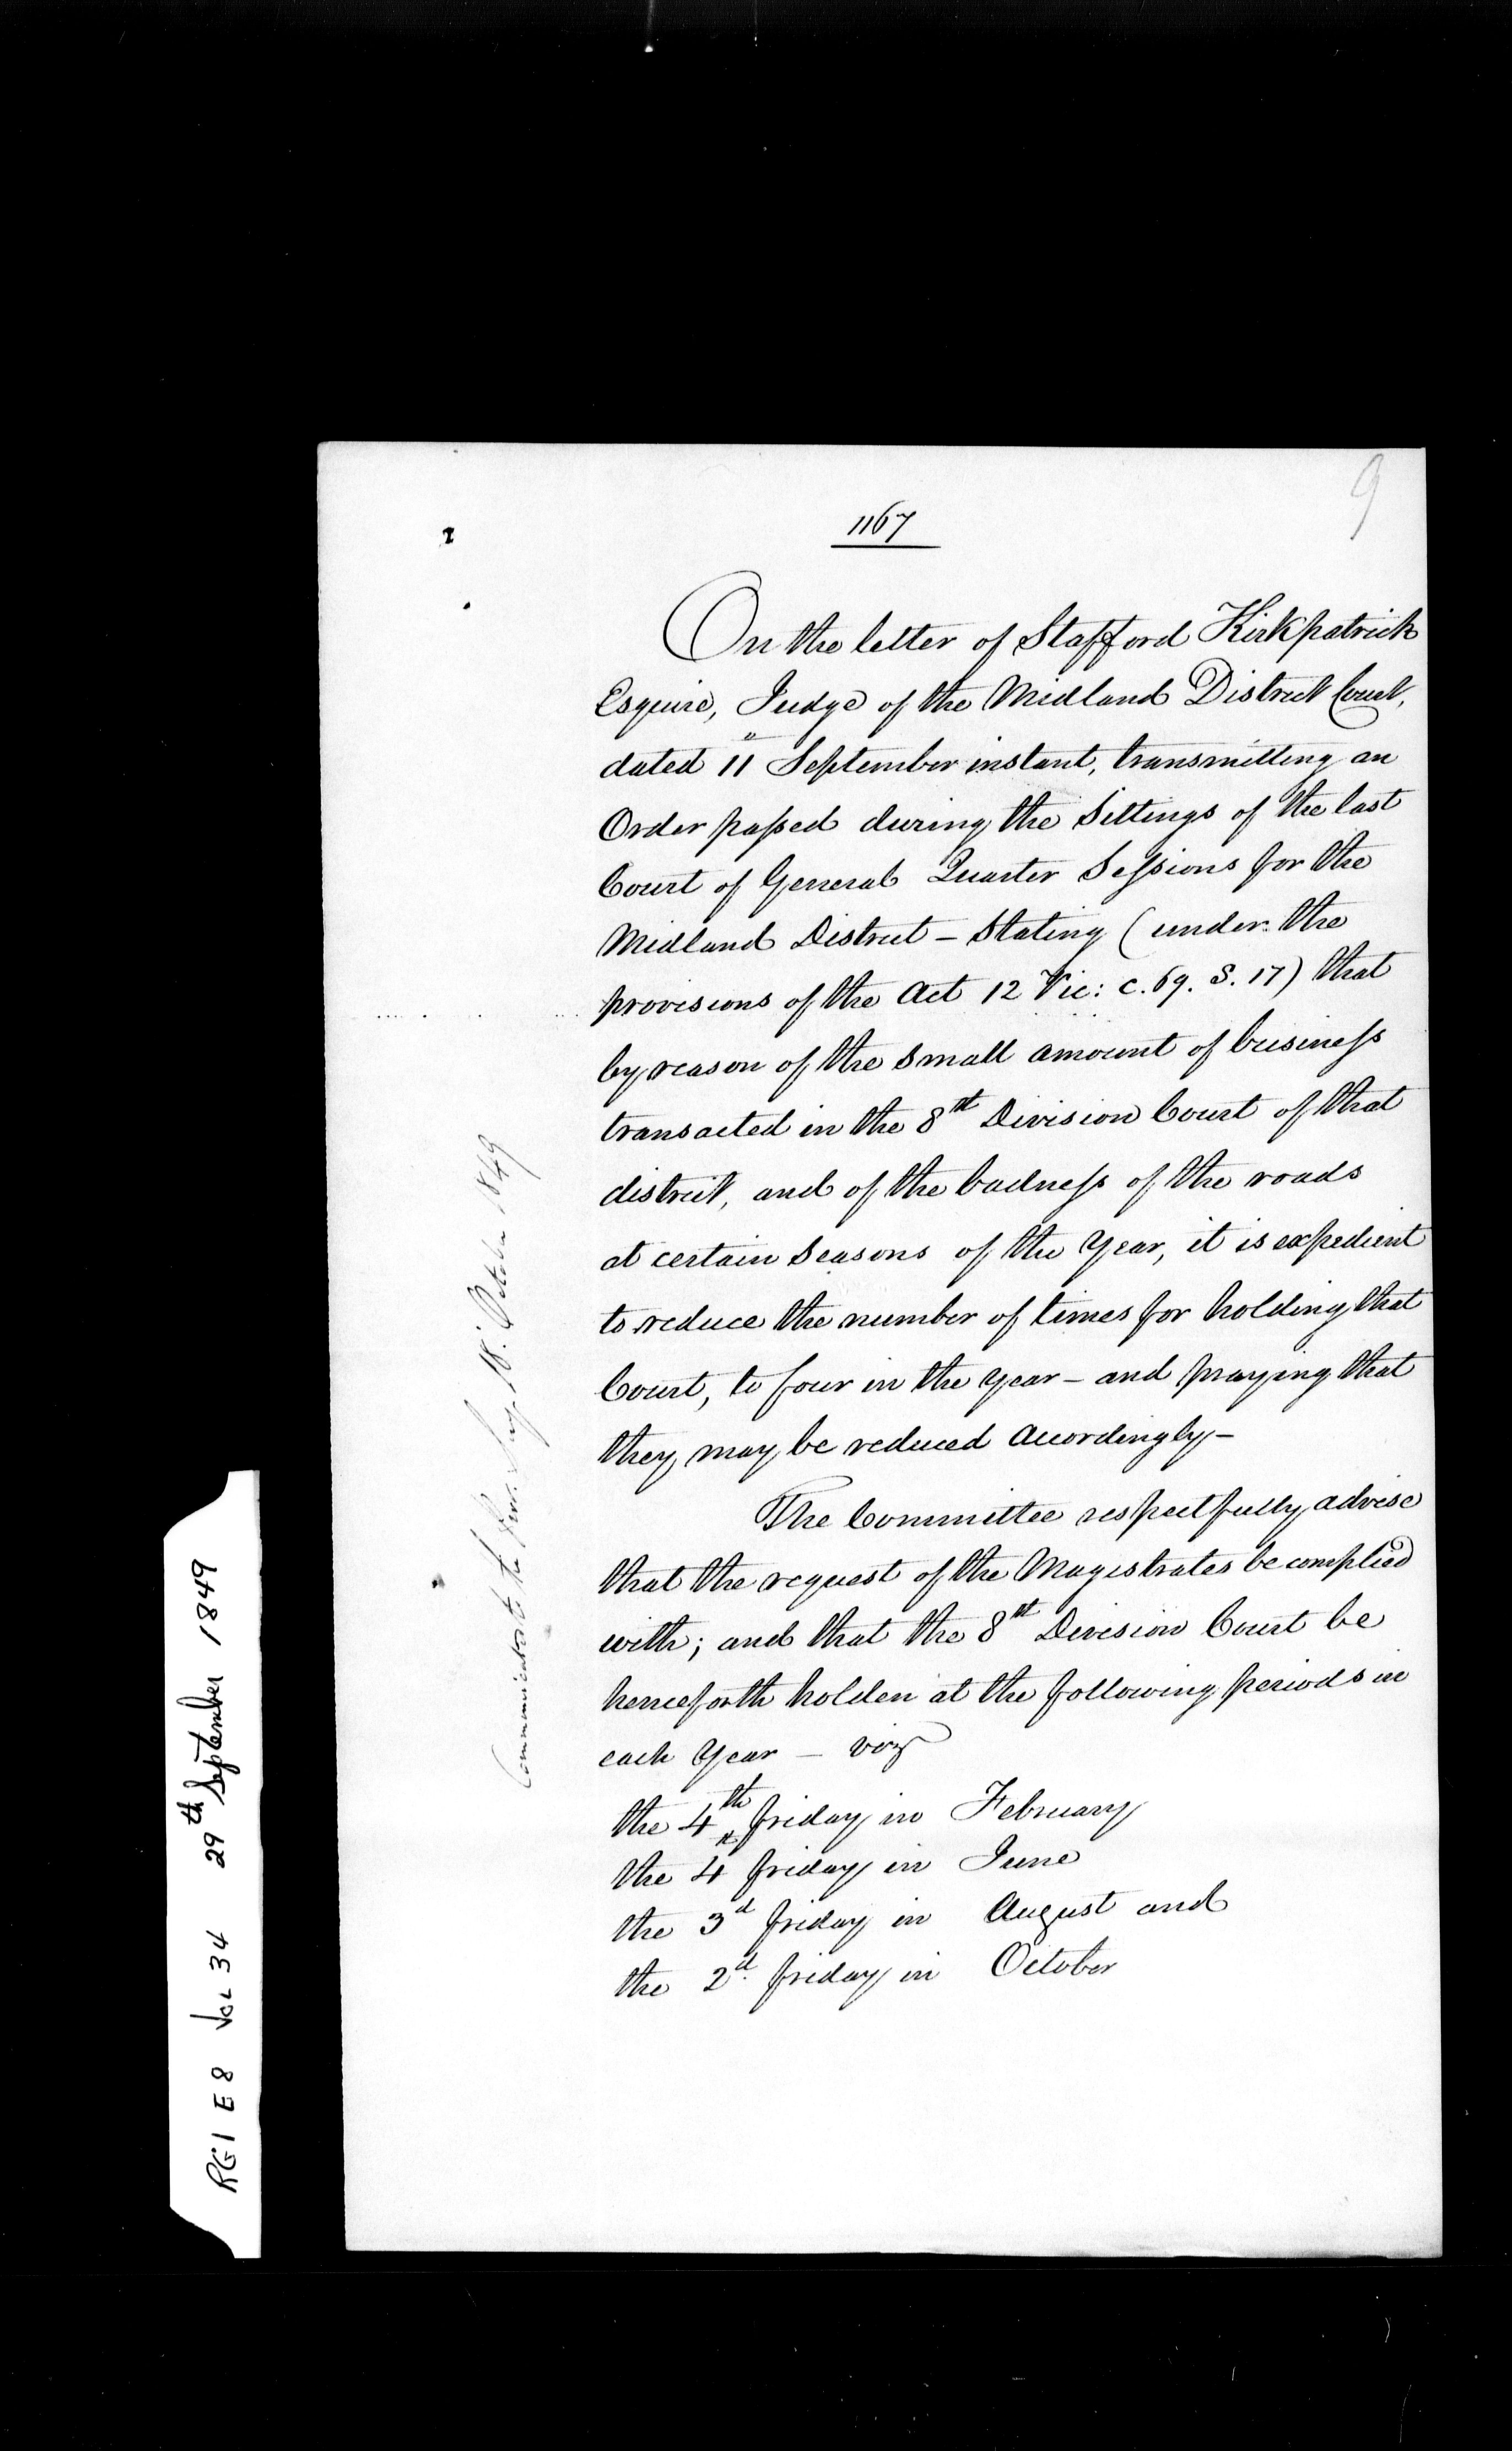 9
1167
On the letter of Stafford Kirkpatrick
Esquire, Judge of the Midland District Court,
dated 11 September instant, transmitting an
Order passed during the Sittings of the last
Court of General Quarter Sessions for the
Midland District - Stating (under the
provisions of the Act 12 Vic: c. 69. S. 17) that
by reason of the small amount of business
transacted in the 8th Division Court of that
district, and of the badness of the roads
at certain seasons of the Year, it is expedient
to reduce the number of times for holding that
Court, to four in the year - and praying that
they may be reduced accordingly -
The Committee respectfully advise
that the request of the Magistrates be complied
with; and that the 8th Division Court be
henceforth holden at the following periods in
each Year - viz
the 4th friday in February
the 4th friday in June
the 3d friday in August and
the 2d. friday in October
Communicated to the 18. October 1849
RG1 E8 Vol 34 29th September 1849